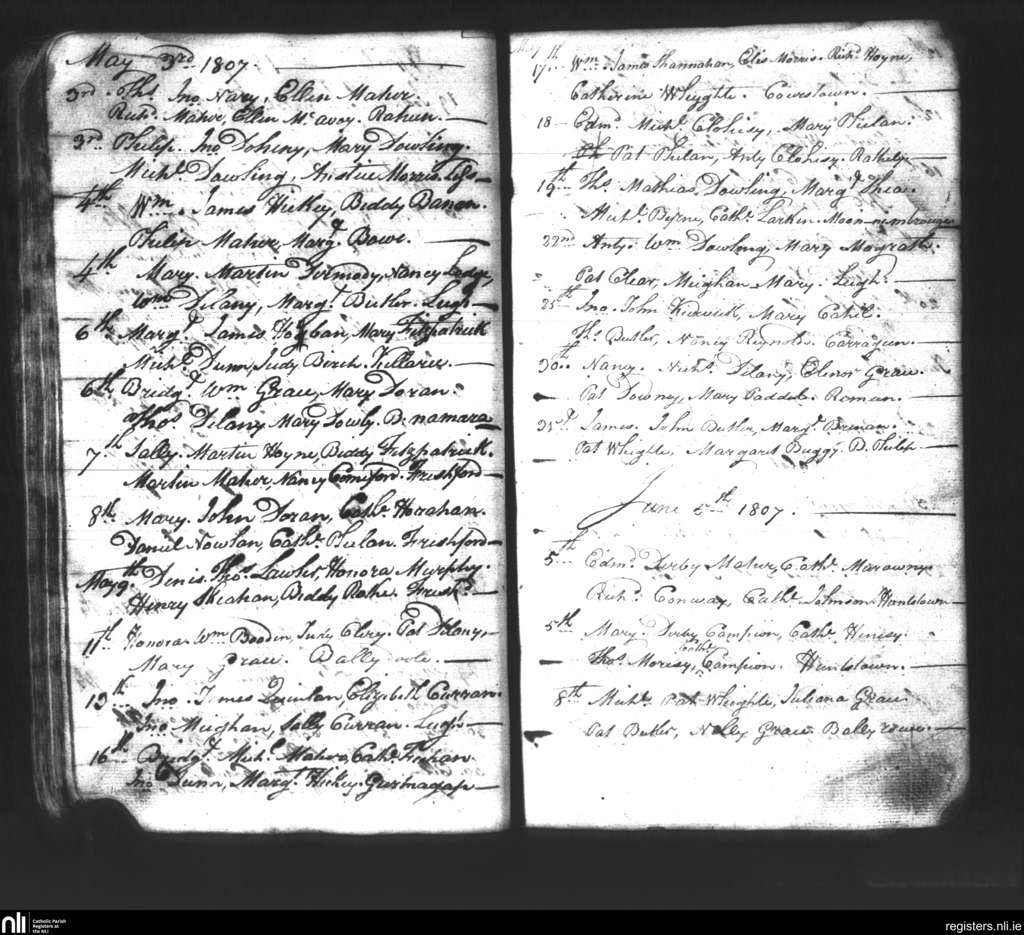 May 3rd 1807.
3rd Ths Jno Nary, Ellen Maher.
Richd Maher, Ellen McAvoy. Rahun.
3rd Philip. Jno Doheny, Mary Dowling.
Michl Dowling, Anstice Morris.
4th Wm. James Hickey, Biddy Banon.
Philip Maher, Margt Bowe.
4th Mary. Martin Dermody, Nancy Lodge,
Wm Delany, Margt Butler. Leigh
6th Margt James Hogban, Mary Fitzpatrick
Michl Dunn, Judy Birch. Killarue.
6th Bridgt Wm Grace, Mary Doran.
Thos Delany Mary Dowly. B:namara
7th Sally. Martin Hoyne, Biddy Fitzpatrick.
Martin Maher, Nancy Comerford. Freshford
8th Mary. John Doran, Cathe Horahan.
Daniel Nowlan, Cathe Phelan. Freshford
May 9th Denis. Thos Lawler, Honora Murphy.
Henry Skeahan, Biddy Rahe. Freshd
11th Honora. Wm Boodin, Judy Clery. Pat Delany,
Mary Grace.
13th Jno. James Quinlan, Elizabeth Curran.
Jno Meighan, Sally Curran. Leigh
16th Bridgt Michl Maher, Cathe
Jno Dunn, Margt Hickey.
May
17th Wm. James Shannahan, Elis Morris. Richd Hoyne,
Catherine Wheyghte. Courstown.
18 Edmd Michl Clohesy, Mary Phelan.
Pat Phelan, Anty Clohesy. Rathely
19th Ths Mathias Dowling, Margt Shea.
Michl Byrne, Cathe Larkin.
22nd Anty. Wm Dowling, Mary Mograth.
Pat Clear, Meighan Mary. Leigh
25th Jno. John Kerwick, Mary Cahil.
Ths Butler, Noncy Reynold. Carrageen.
30th Nancy. Nichs Delany, Elenor Grace.
Pat Downy, Mary Paddel. Roman.
31st James. John Butler, Margt Brenan.
Pat Wheighte, Margaret Duggy. B. Philip
June 5th 1807.
5th Edmd Derby Maher, Cathe Marowny
Richd Conway, Cathe Johnson Huntstown
5th Mary. Derby Campion, Cathe Henesy.
Thos Moresy, Cathe Campion. Huntstown.
8th Michl Pat Wheighte, Juliana Grace
Pat Butler, Nelly Grace
nli Catholic Parish
Registers at
the NLI
registers.nli.ie